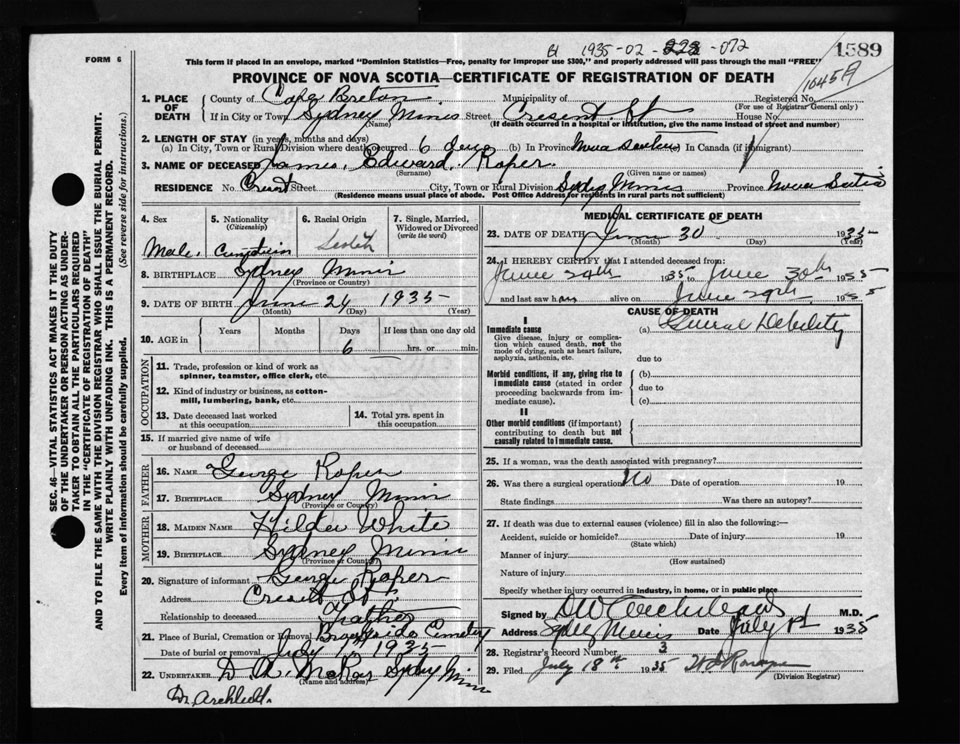 BH 1935-02-228-072
1589
FORM 6
10459
This form if placed in an envelope, marked "Dominion Statistics—Free, penalty for improper use $300," and properly addressed will pass through the mail "FREE"
PROVINCE OF NOVA SCOTIA—CERTIFICATE OF REGISTRATION OF DEATH
SEC. 46—VITAL STATISTICS ACT MAKES IT THE DUTY OF THE UNDERTAKER OR PERSON ACTING AS UNDERTAKER TO OBTAIN ALL THE PARTICULARS REQUIRED IN THE "CERTIFICATE OF REGISTRATION OF DEATH"
AND TO FILE THE SAME WITH THE DIVISION REGISTRAR WHO SHALL ISSUE THE BURIAL PERMIT.
WRITE PLAINLY WITH UNFADING INK. THIS IS A PERMANENT RECORD.
Every item of information should be carefully supplied. (See reverse side for instructions.)
1. PLACE OF DEATH County of Cape Breton Municipality of Registered No.
(For use of Registrar General only)
If in City or Town Sydney Mines Street Cresent St House No.
(Name) (If death occurred in a hospital or institution, give the name instead of street and number)
2. LENGTH OF STAY (in years, months and days)
(a) In City, Town or Rural Division where death occurred 6 days (b) In Province Nova Scotia (c) In Canada (if immigrant)
3. NAME OF DECEASED James Edward Roper
(Surname) (Given name or names)
RESIDENCE No. Cresent Street City, Town or Rural Division Sydney Mines Province Nova Scotia
(Residence means usual place of abode. Post Office Address for residents in rural parts not sufficient)
4. Sex 5. Nationality (Citizenship) 6. Racial Origin 7. Single, Married, Widowed or Divorced (write the word)
Male Scotch
8. BIRTHPLACE Sydney Mines
(Province or Country)
9. DATE OF BIRTH June 24 1935
(Month) (Day) (Year)
10. AGE in Years Months Days If less than one day old
6 hrs. or min.
OCCUPATION
11. Trade, profession or kind of work as spinner, teamster, office clerk, etc.
12. Kind of industry or business, as cotton-mill, lumbering, bank, etc.
13. Date deceased last worked at this occupation 14. Total yrs. spent in this occupation
15. If married give name of wife or husband of deceased
FATHER
16. NAME George Roper
17. BIRTHPLACE Sydney Mines
(Province or Country)
MOTHER
18. MAIDEN NAME Hilda White
19. BIRTHPLACE Sydney Mines
(Province or Country)
20. Signature of informant George Roper
Address Cresent St
Relationship to deceased Father
21. Place of Burial, Cremation or Removal Brookside Cemetery
Date of burial or removal July 1st 1935
22. UNDERTAKER D. A. McRae Sydney Mines
(Name and address)
MEDICAL CERTIFICATE OF DEATH
23. DATE OF DEATH June 30 1935
(Month) (Day) (Year)
24. I HEREBY CERTIFY that I attended deceased from:
June 29th 1935 to June 30th 1935
and last saw h alive on June 29th 1935
CAUSE OF DEATH
I
Immediate cause (a) General Debility
Give disease, injury or complication which caused death, not the mode of dying, such as heart failure, asphyxia, asthenia, etc.
due to
Morbid conditions, if any, giving rise to immediate cause (stated in order proceeding backwards from immediate cause).
(b)
due to
(c)
II
Other morbid conditions (if important) contributing to death but not causally related to immediate cause.
25. If a woman, was the death associated with pregnancy?
26. Was there a surgical operation? No Date of operation 19
State findings Was there an autopsy?
27. If death was due to external causes (violence) fill in also the following:—
Accident, suicide or homicide? Date of injury 19
(State which)
Manner of injury
(How sustained)
Nature of injury
Specify whether injury occurred in industry, in home, or in public place
Signed by M.D.
Address Sydney Mines Date July 1st 1935
28. Registrar's Record Number 3
29. Filed July 18th 1935
(Division Registrar)